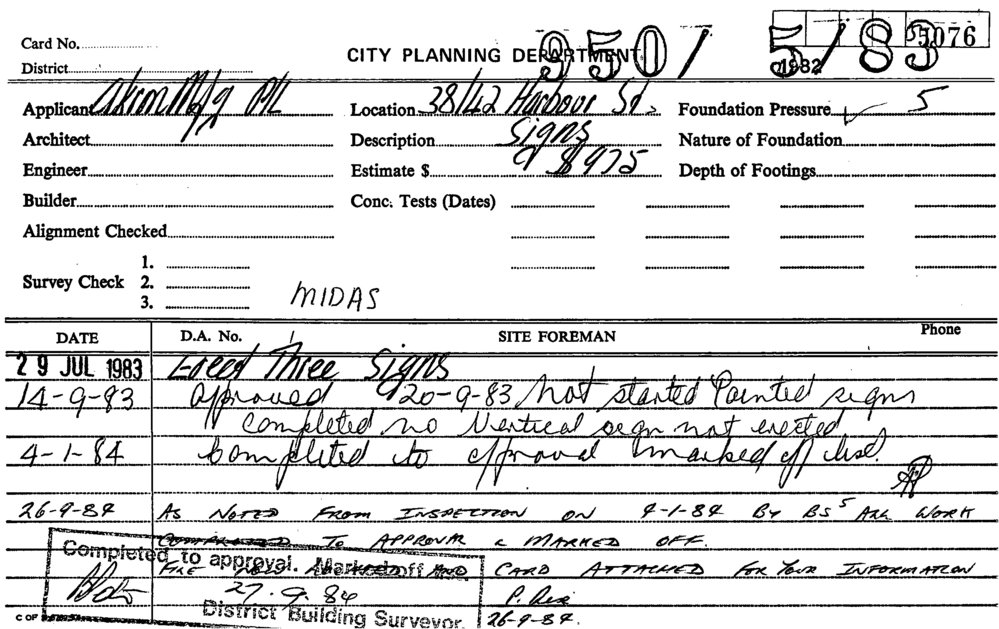 5076
Card No.
CITY PLANNING DEPARTMENT
9501 5/83
1982
District
Applicant Akron Mfg P/L Location 38/42 Harbour St. Foundation Pressure 5
Architect Description Signs Nature of Foundation
Engineer Estimate $ $975 Depth of Footings
Builder Conc. Tests (Dates)
Alignment Checked
1.
Survey Check 2.
3.
MIDAS
DATE D.A. No. SITE FOREMAN Phone
29 JUL 1983 Erect Three Signs
14-9-83 Approved 20-9-83 Not started Painted signs
completed no Vertical sign not erected
4-1-84 Completed to approval marked off list.
26-9-84 AS NOTED FROM INSPECTION ON 4-1-84 BY BS5 ALL WORK
COMPLETED TO APPROVAL & MARKED OFF.
FILE AND CARD ATTACHED FOR YOUR INFORMATION
Completed to approval. Marked off
27.9.84
District Building Surveyor.
26-9-84.
C OF